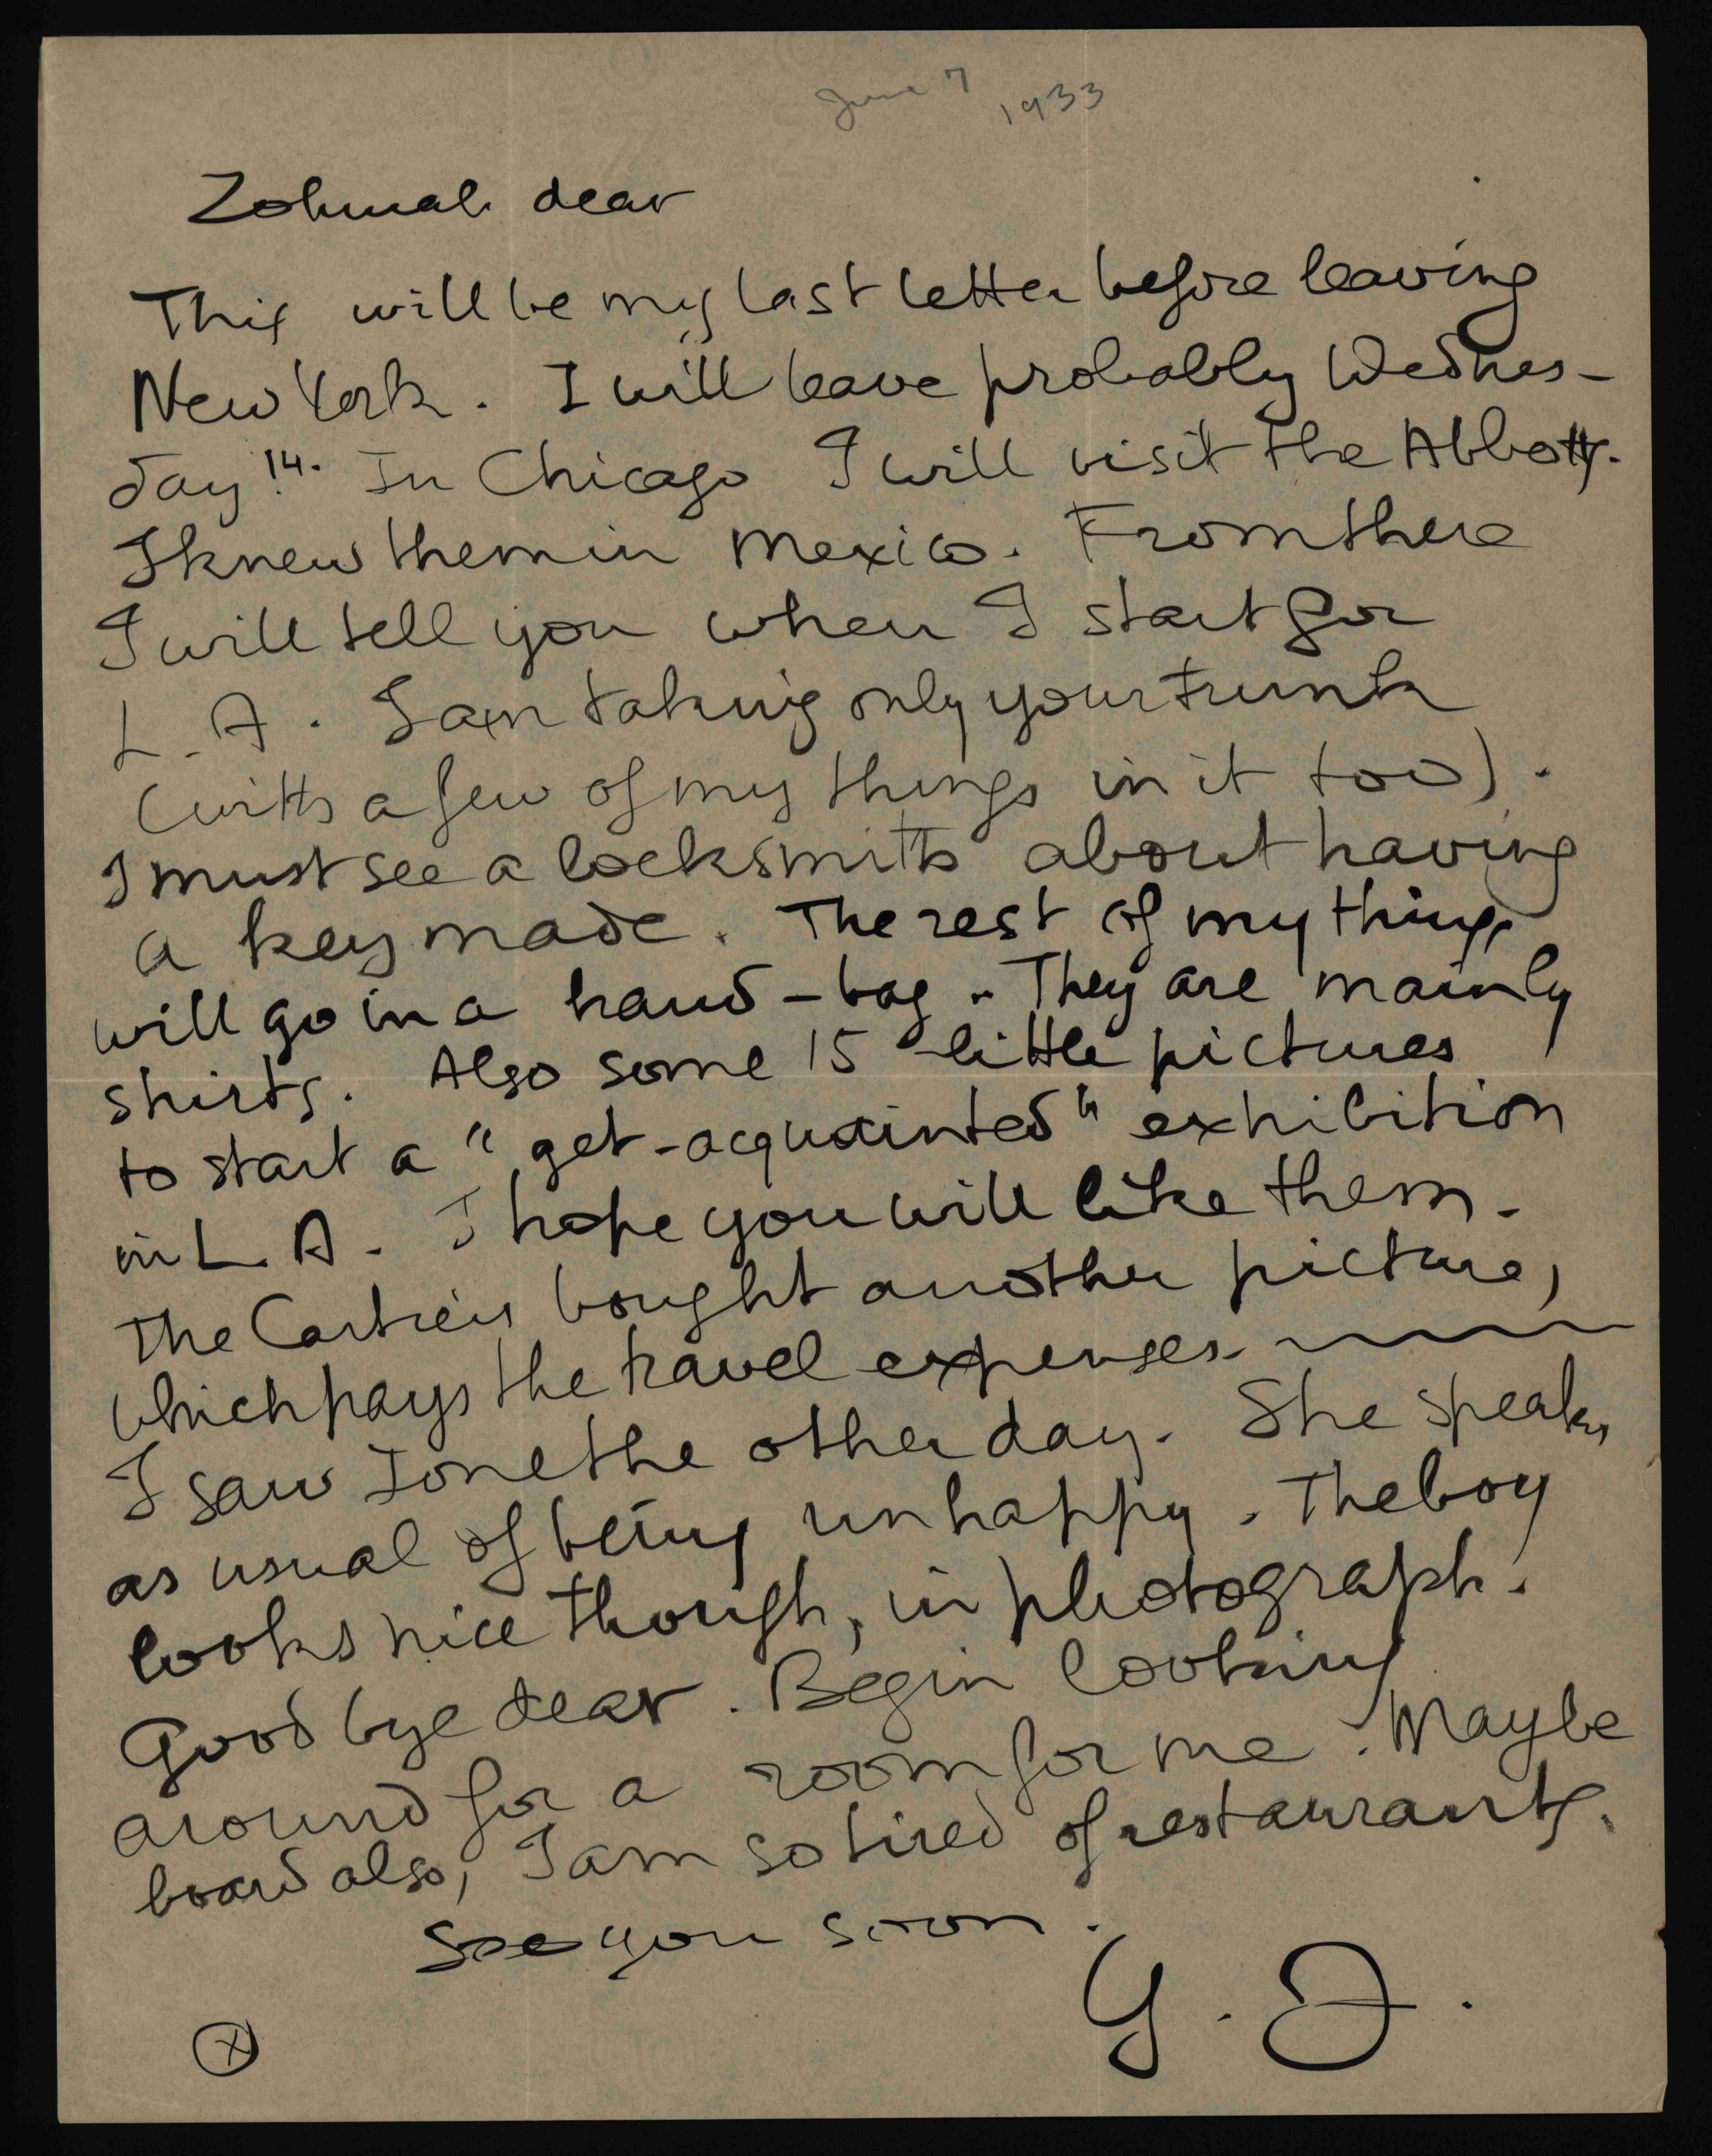 June 7 1933
Zohmah dear
This will be my last letter before leaving
New York. I will leave probably Wednes-
day 14. In Chicago I will visit the Abbotts.
I knew them in Mexico. From there
I will tell you when I start for
L.A. I am taking only your trunk
(with a few of my things in it too).
I must see a locksmith about having
a key made. The rest of my things
will go in a hand-bag. They are mainly
shirts. Also some 15 little pictures
to start a "get-acquainted" exhibition
in L.A. I hope you will like them.
The Cartiers bought another picture,
which pays the travel expenses.
I saw Ione the other day. She speaks
as usual of being unhappy. The boy
looks nice though, in photograph.
Good bye dear. Begin looking
around for a room for me. Maybe
board also, I am so tired of restaurants.
See you soon.
X